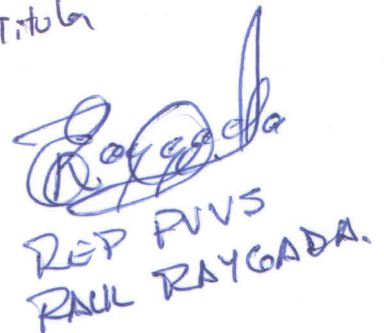 Titula
R. Raygada
REP PVVS
RAUL RAYGADA.